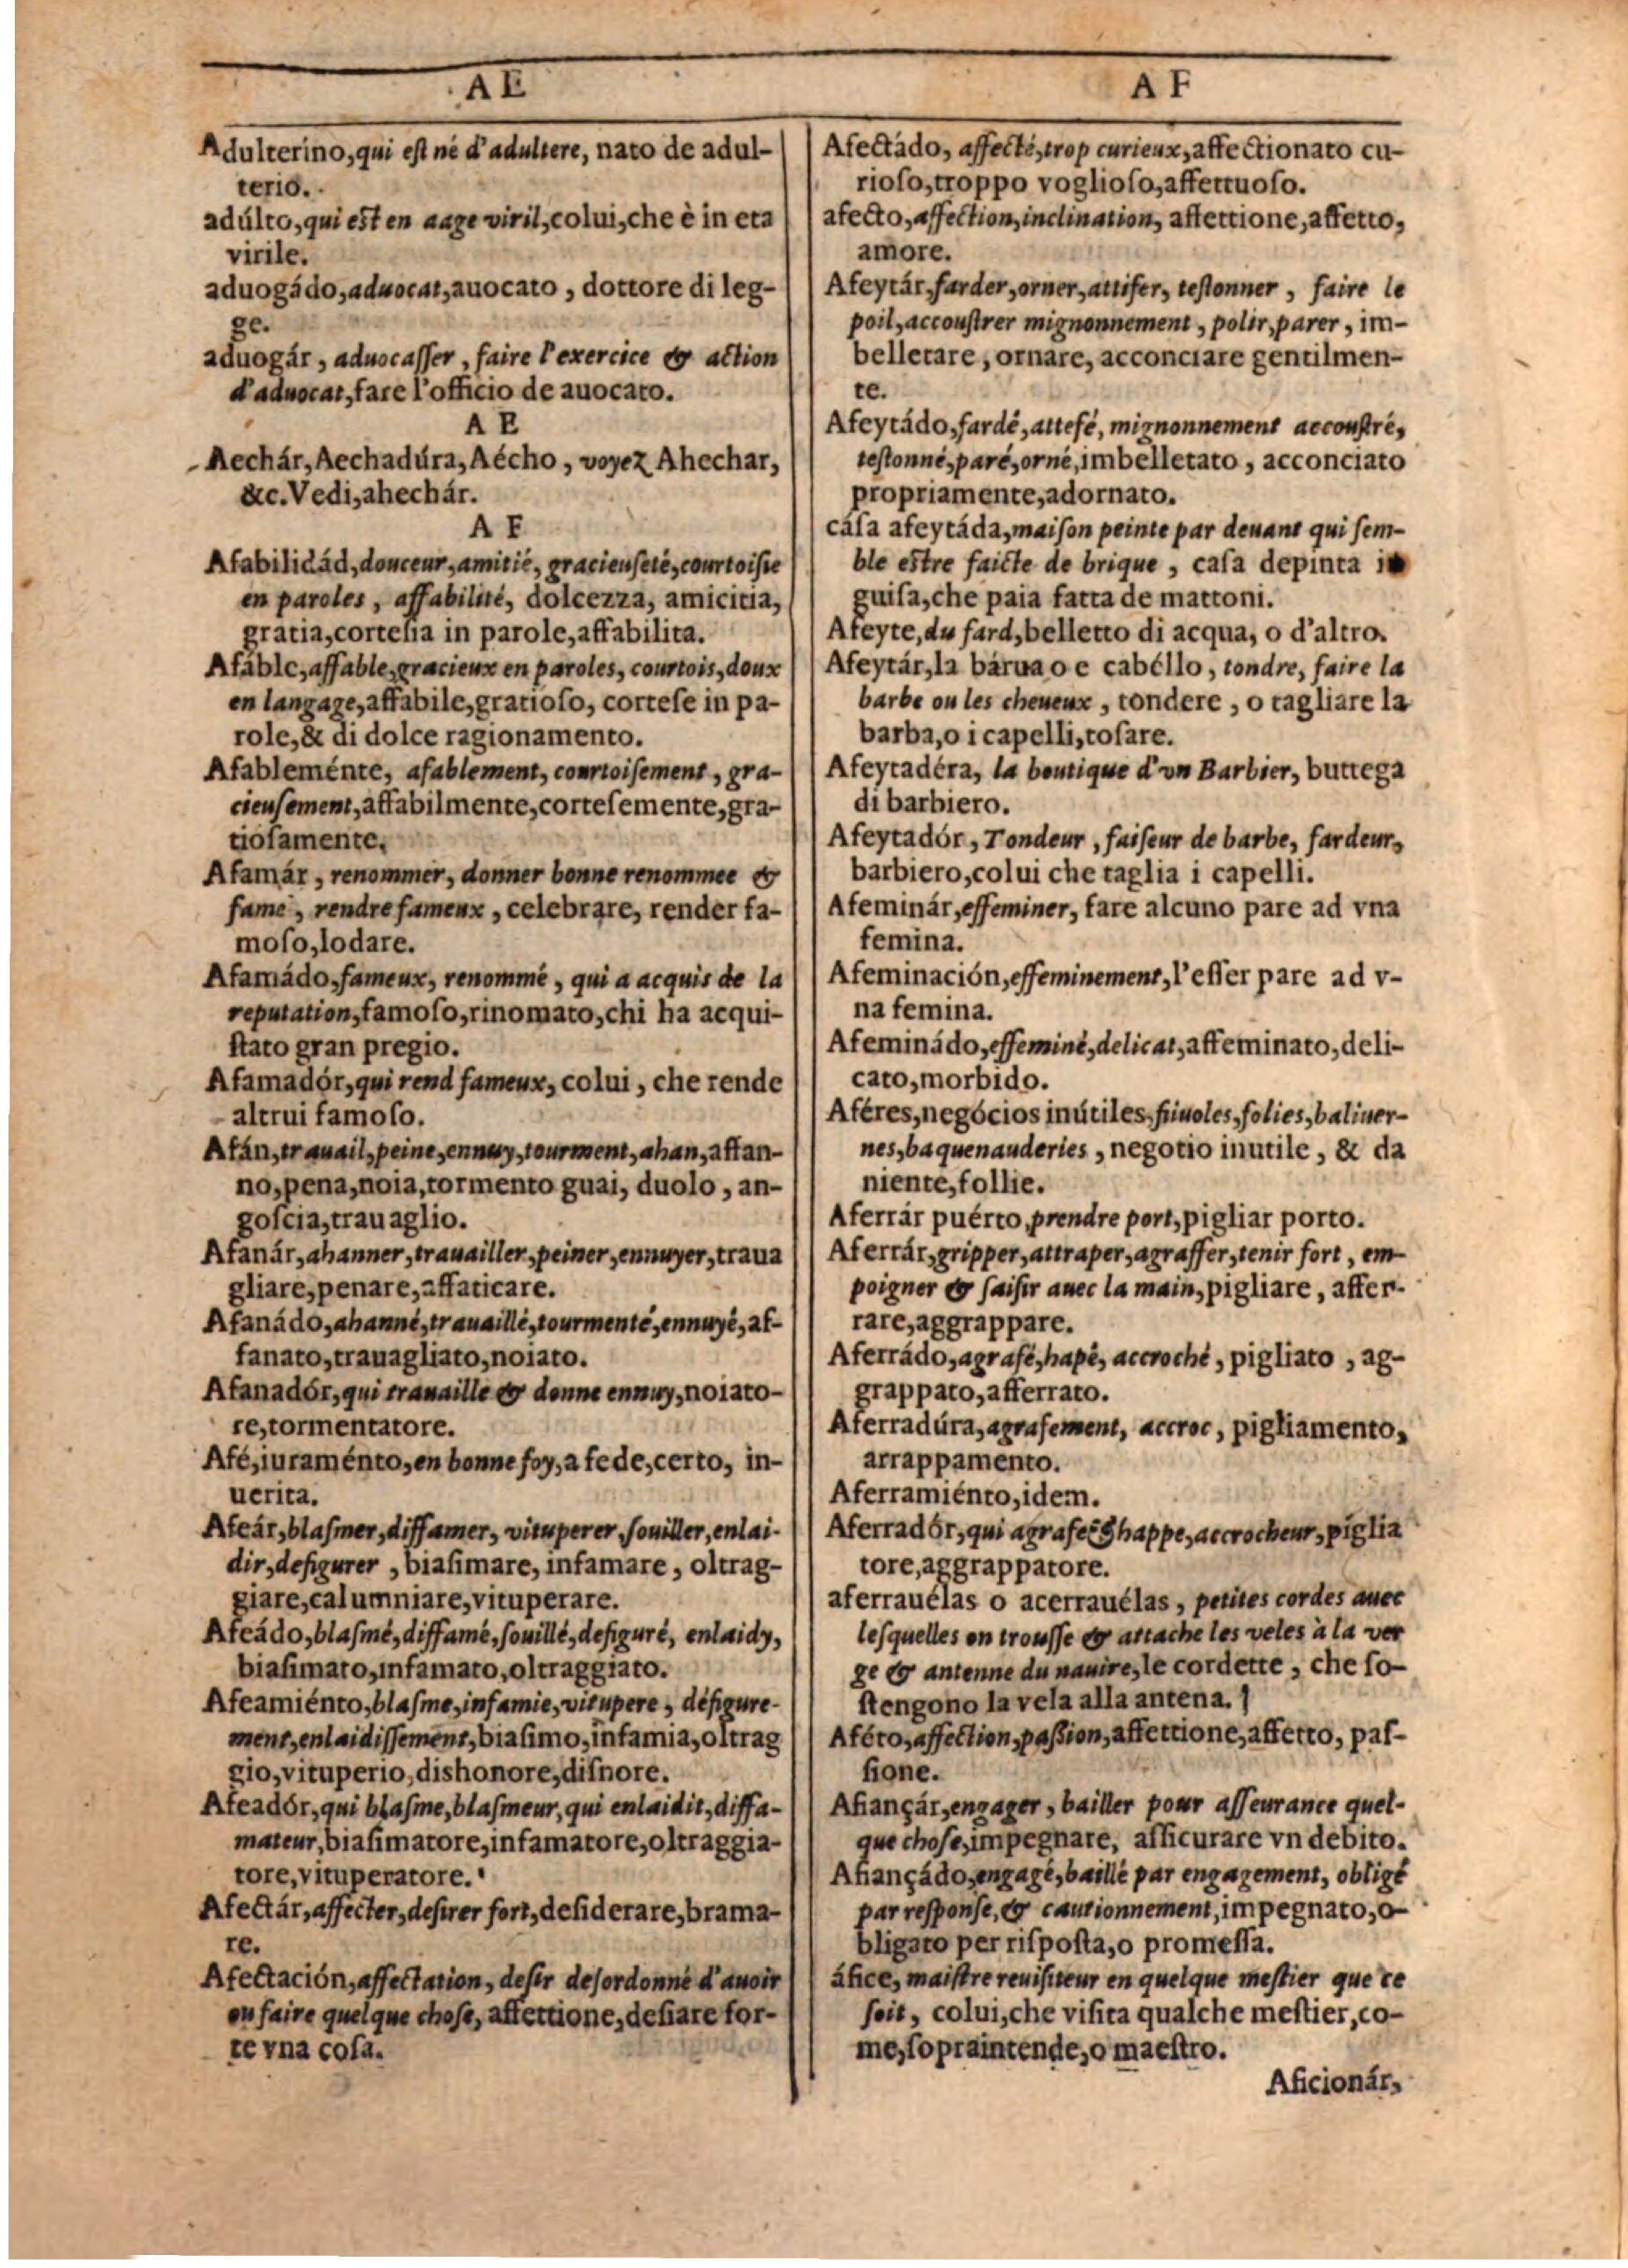 A E
Adulterino, qui eſt né d'adultere, nato de adul-
terio.
adúlto, qui est en aage viril, colui, che è in eta
virile.
aduogádo, aduocat, auocato, dottore di leg-
ge.
aduogár, aduocaſſer, faire l'exercice & action
d'aduocat, fare l'officio de auocato.
A E
Aechár, Aechadúra, Aécho, voyez Ahechar,
&c. Vedi, ahechár.
A F
Afabilidád, douceur, amitié, gracieuſeté, courtoiſie
en paroles, affabilité, dolcezza, amicitia,
gratia, corteſia in parole, affabilita.
Afáble, affable, gracieux en paroles, courtois, doux
en langage, affabile, gratioſo, corteſe in pa-
role, & di dolce ragionamento.
Afableménte, afablement, courtoiſement, gra-
cieuſement, affabilmente, corteſemente, gra-
tioſamente.
Afamár, renommer, donner bonne renommee &
fame, rendre fameux, celebrare, render fa-
moſo, lodare.
Afamádo, fameux, renommé, qui a acquis de la
reputation, famoſo, rinomato, chi ha acqui-
ſtato gran pregio.
Afamadór, qui rend fameux, colui, che rende
altrui famoſo.
Afán, trauail, peine, ennuy, tourment, ahan, affan-
no, pena, noia, tormento guai, duolo, an-
goſcia, trauaglio.
Afanár, ahanner, trauailler, peiner, ennuyer, traua
gliare, penare, affaticare.
Afanádo, ahanné, trauaillé, tourmenté, ennuyé, af-
fanato, trauagliato, noiato.
Afanadór, qui trauaille & donne ennuy, noiato-
re, tormentatore.
Afé, iuraménto, en bonne foy, a fede, certo, in-
uerita.
Afeár, blaſmer, diffamer, vituperer, ſouiller, enlai-
dir, defigurer, biaſimare, infamare, oltrag-
giare, calumniare, vituperare.
Afeádo, blaſmé, diffamé, ſouillé, defiguré, enlaidy,
biaſimato, infamato, oltraggiato.
Afeamiénto, blaſme, infamie, vitupere, défigure-
ment, enlaidiſſement, biaſimo, infamia, oltrag
gio, vituperio, dishonore, diſnore.
Afeadór, qui blaſme, blaſmeur, qui enlaidit, diffa-
mateur, biaſimatore, infamatore, oltraggia-
tore, vituperatore.
Afectár, affecter, deſirer fort, deſiderare, brama-
re.
Afectación, affectation, deſir deſordonné d'auoir
ou faire quelque choſe, affettione, deſiare for-
te vna coſa.
A F
Afectádo, affecté, trop curieux, affectionato cu-
rioſo, troppo voglioſo, affettuoſo.
afecto, affection, inclination, affettione, affetto,
amore.
Afeytár, farder, orner, attifer, teſtonner, faire le
poil, accouſtrer mignonnement, polir, parer, im-
belletare, ornare, acconciare gentilmen-
te.
Afeytádo, fardé, attefé, mignonnement accouſtré,
teſtonné, paré, orné, imbelletato, acconciato
propriamente, adornato.
cáſa afeytáda, maiſon peinte par deuant qui ſem-
ble estre faicte de brique, caſa depinta in
guiſa, che paia fatta de mattoni.
Afeyte, du fard, belletto di acqua, o d'altro.
Afeytár, la bárua o e cabéllo, tondre, faire la
barbe ou les cheueux, tondere, o tagliare la
barba, o i capelli, toſare.
Afeytadéra, la boutique d'vn Barbier, buttega
di barbiero.
Afeytadór, Tondeur, faiſeur de barbe, fardeur,
barbiero, colui che taglia i capelli.
Afeminár, effeminer, fare alcuno pare ad vna
femina.
Afeminación, effeminement, l'eſſer pare ad v-
na femina.
Afeminádo, effeminé, delicat, affeminato, deli-
cato, morbido.
Aféres, negócios inútiles, friuoles, folies, baliuer-
nes, baquenauderies, negotio inutile, & da
niente, follie.
Aferrár puérto, prendre port, pigliar porto.
Aferrár, gripper, attraper, agraffer, tenir fort, em-
poigner & ſaiſir auec la main, pigliare, affer-
rare, aggrappare.
Aferrádo, agrafé, hapé, accroché, pigliato, ag-
grappato, afferrato.
Aferradúra, agrafement, accroc, pigliamento,
arrappamento.
Aferramiénto, idem.
Aferradór, qui agrafe & happe, accrocheur, piglia
tore, aggrappatore.
aferrauélas o acerrauélas, petites cordes auec
leſquelles on trouſſe & attache les veles à la ver
ge & antenne du nauire, le cordette, che ſo-
ſtengono la vela alla antena.
Aféto, affection, paſſion, affettione, affetto, paſ-
ſione.
Afiançár, engager, bailler pour aſſeurance quel-
que choſe, impegnare, aſſicurare vn debito.
Afiançádo, engagé, baillé par engagement, obligé
par reſponſe, & cautionnement, impegnato, o-
bligato per riſpoſta, o promeſſa.
áfice, maiſtre reuiſiteur en quelque meſtier que ce
ſoit, colui, che viſita qualche meſtier, co-
me, ſopraintende, o maeſtro.
Aficionár,